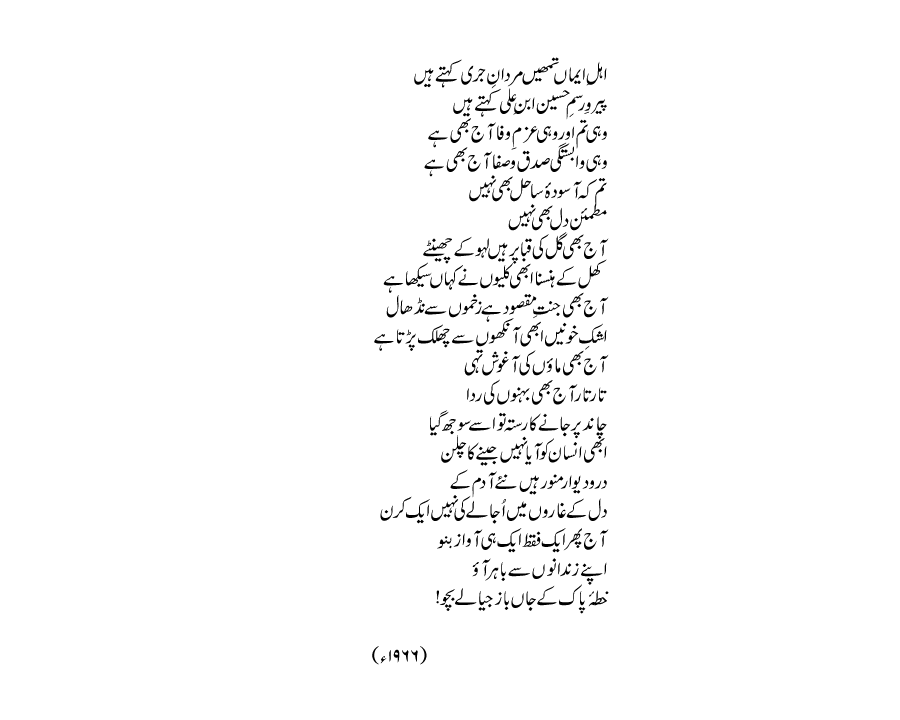 اہل ایماں تمھیں مردانِ جری کہتے ہیں
پیروِ رسمِ حسین ابنِ علی کہتے ہیں
وہی تم اور وہی عزمِ وفا آج بھی ہے
وہی وابستگیِ صدق و صفا آج بھی ہے
تم کہ آسودۂ ساحل بھی نہیں
مطمئن دل بھی نہیں
آج بھی گل کی قبا پر ہیں لہو کے چھینٹے
کھل کے ہنسنا ابھی کلیوں نے کہاں سیکھا ہے
آج بھی جنتِ مقصود ہے زخموں سے نڈھال
اشکِ خونیں ابھی آنکھوں سے چھلک پڑتا ہے
آج بھی ماؤں کی آغوش تہی
تار تار آج بھی بہنوں کی ردا
چاند پر جانے کا رستہ تو اسے سوجھ گیا
ابھی انسان کو آیا نہیں جینے کا چلن
در و دیوار منور ہیں نئے آدم کے
دل کے غاروں میں اُجالے کی نہیں ایک کرن
آج پھر ایک فقط ایک ہی آواز بنو
اپنے زندانوں سے باہر آؤ
خطۂ پاک کے جاں باز جیالے بچو!
(۱۹۶۶ء)